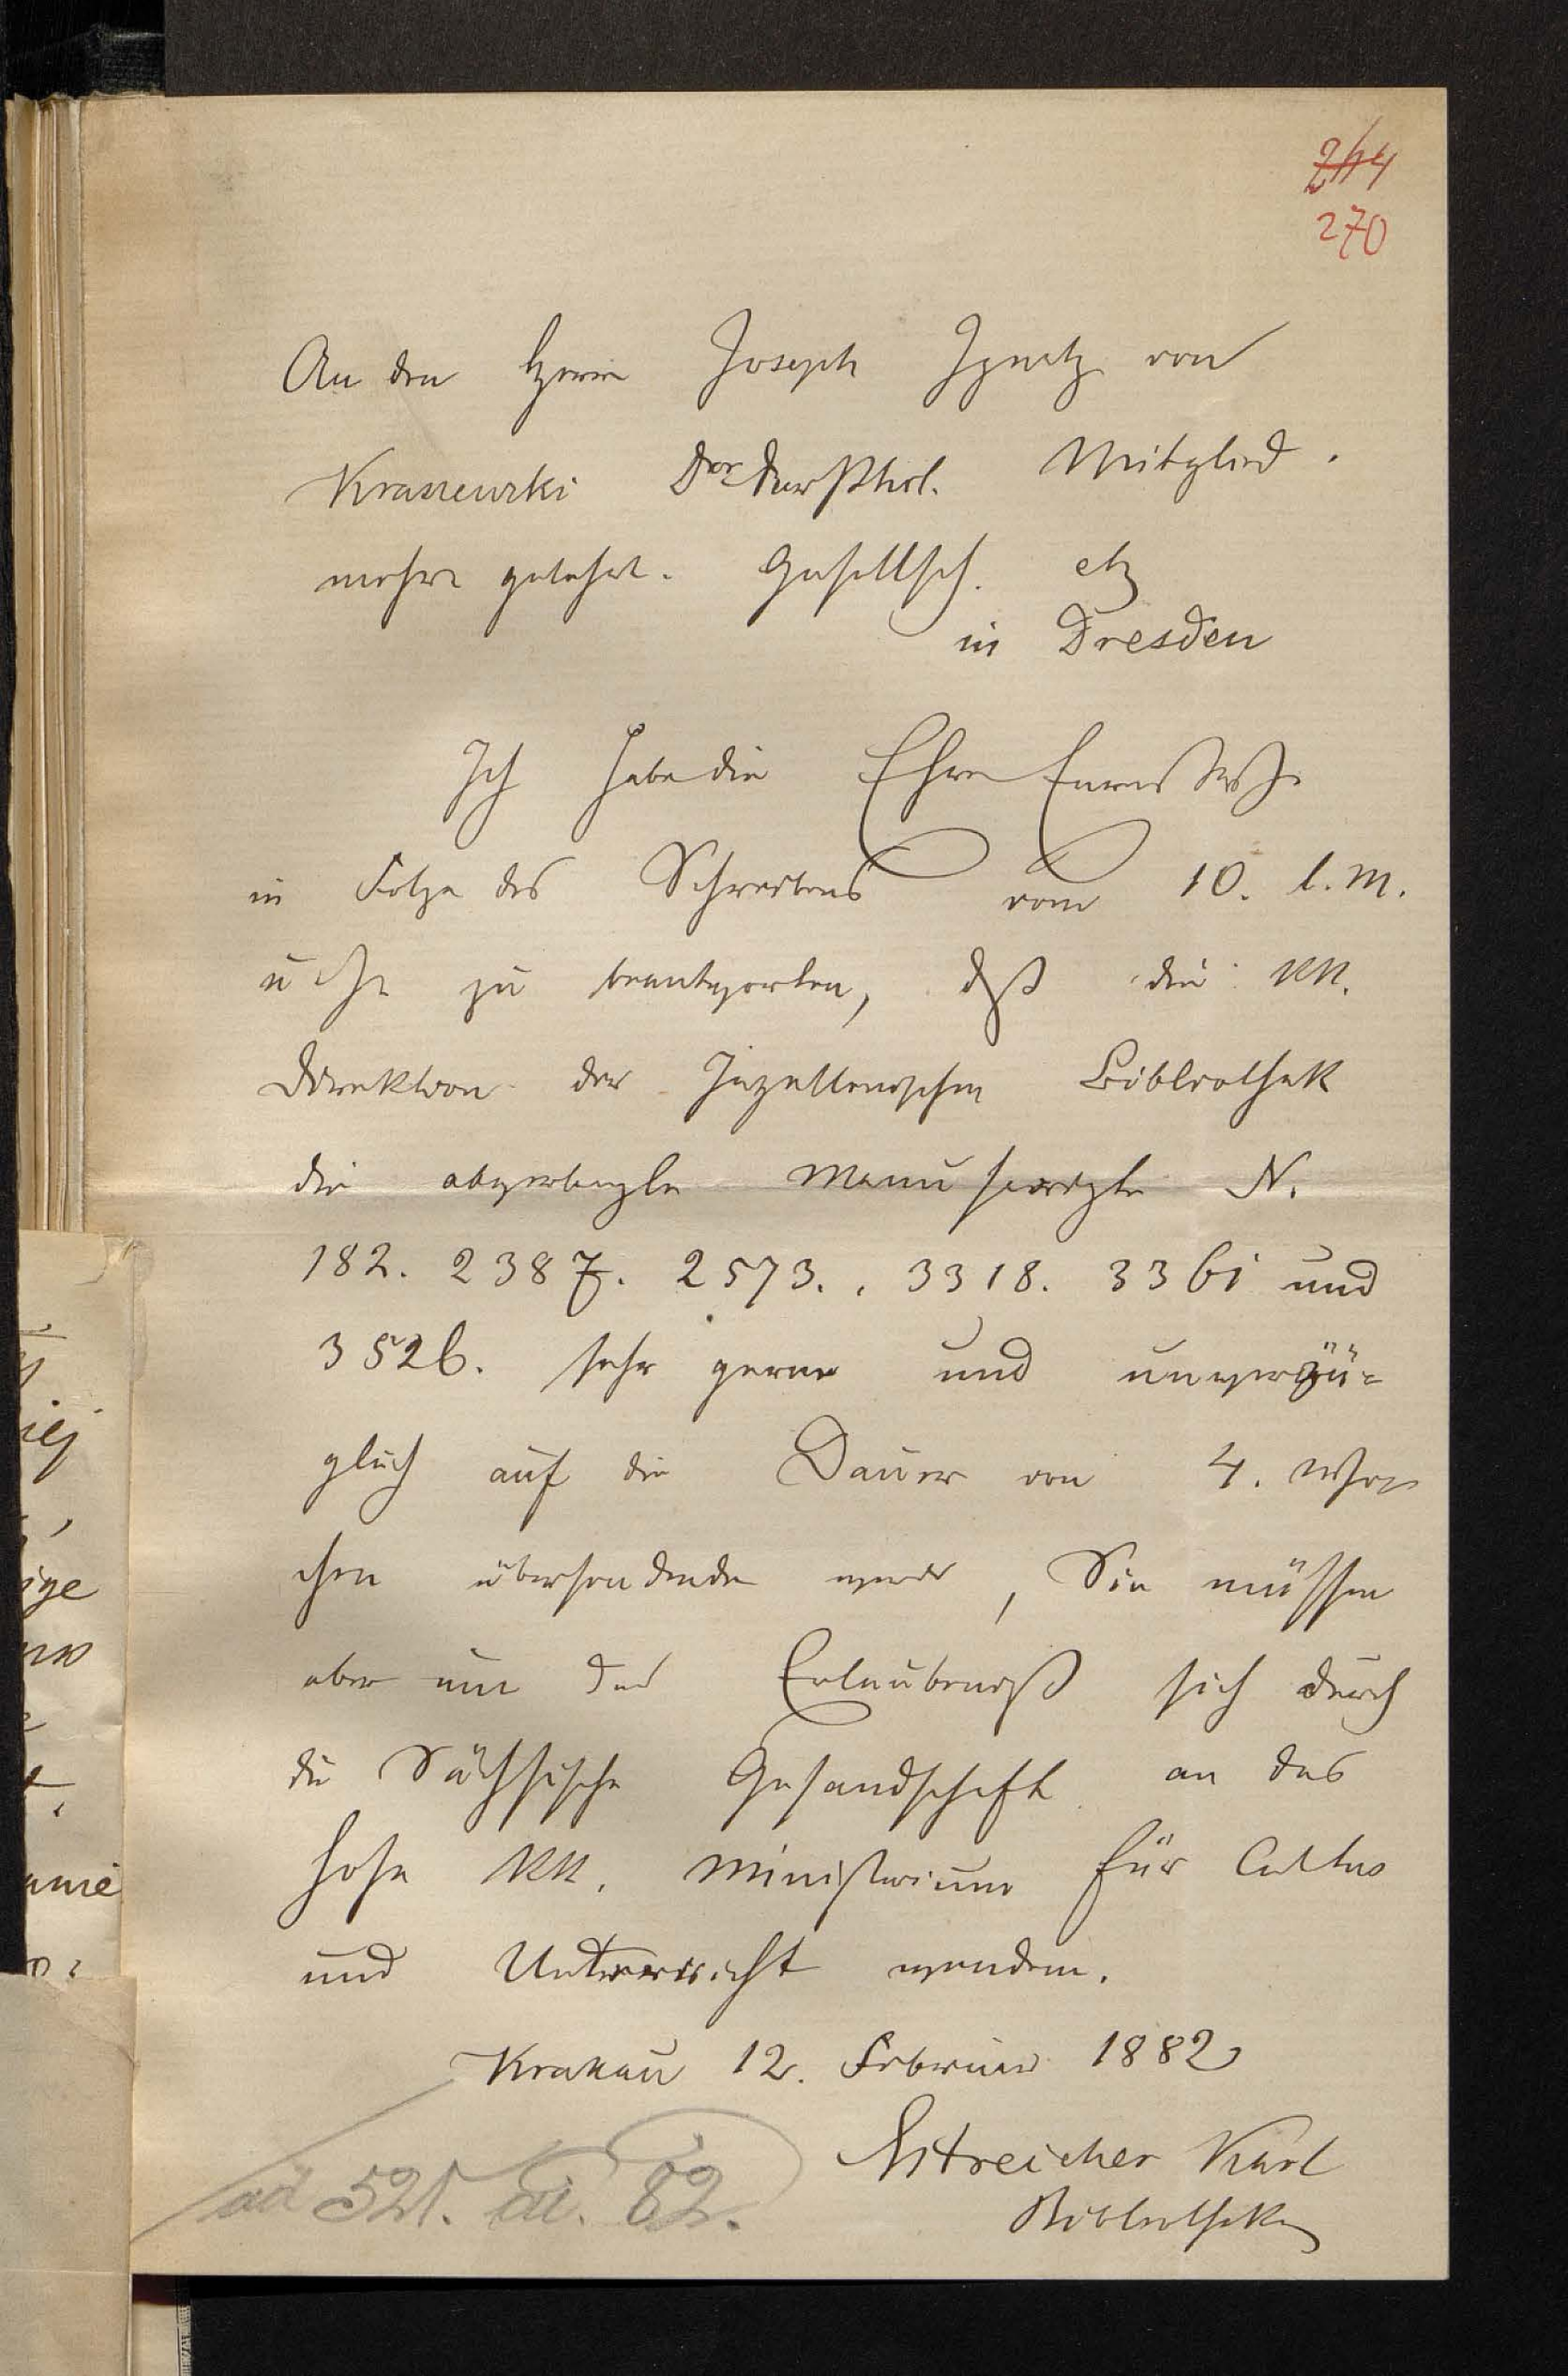 244
270
An den Herrn Joseph Ignatz von
Kraszewski Dor der Phil. Mitglied
mehre gelehrt. Gesellsch. etz
in Dresden
Ich habe die Ehre Euer
in Folge des Schreibens vom 10. l. M.
zu beantworten, daß die KK.
Direktion der Jagellonischen Bibliothek
die abverlangte Manuscripte N.
182. 2387. 2573. 3318. 3361 und
3526. sehr gerne und unverzü-
glich auf die Dauer von 4. Wo
chen übersenden werde, Sie müssen
aber um das Erlaubniß sich durch
die Sächsische Gesandschaft an das
hohe KK. Ministerium für Cultus
und Unterricht wenden.
Krakau 12. Februar 1882
Estreicher Karl
Bibliothekar
ad 521. 82.